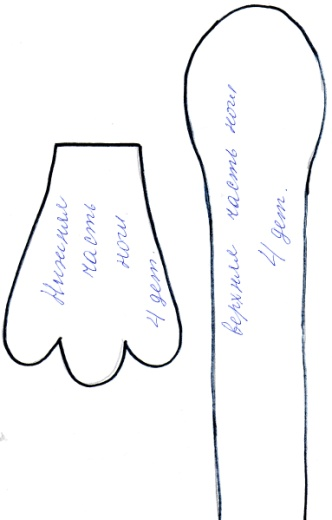 Нижняя
часть
ноги
4 дет.
верхняя часть ноги
4 дет.